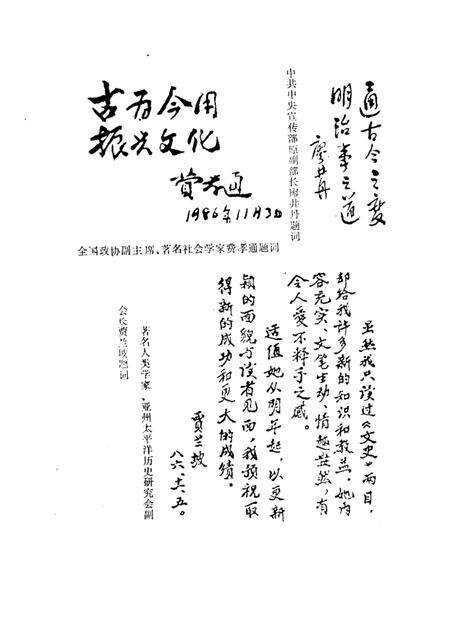 通古今之变
明治本之道
廖井丹
中共中央宣传部原副部长廖井丹题词
古为今用
振兴文化
费孝通
1986年11月3日
全国政协副主席、著名社会学家费孝通题词
虽然我只读过《文史》两目,
却给我许多新的知识和教益。她内
容充实、文笔生动、情趣盎然,有
令人爱不释手之感。
适值她从明年起,以更新
颖的面貌与读者见面,我预祝取
得新的成功和更大的成绩。
贾兰坡
八六、十二、五。
著名人类学家、亚州太平洋历史研究会副
会长贾兰坡题词